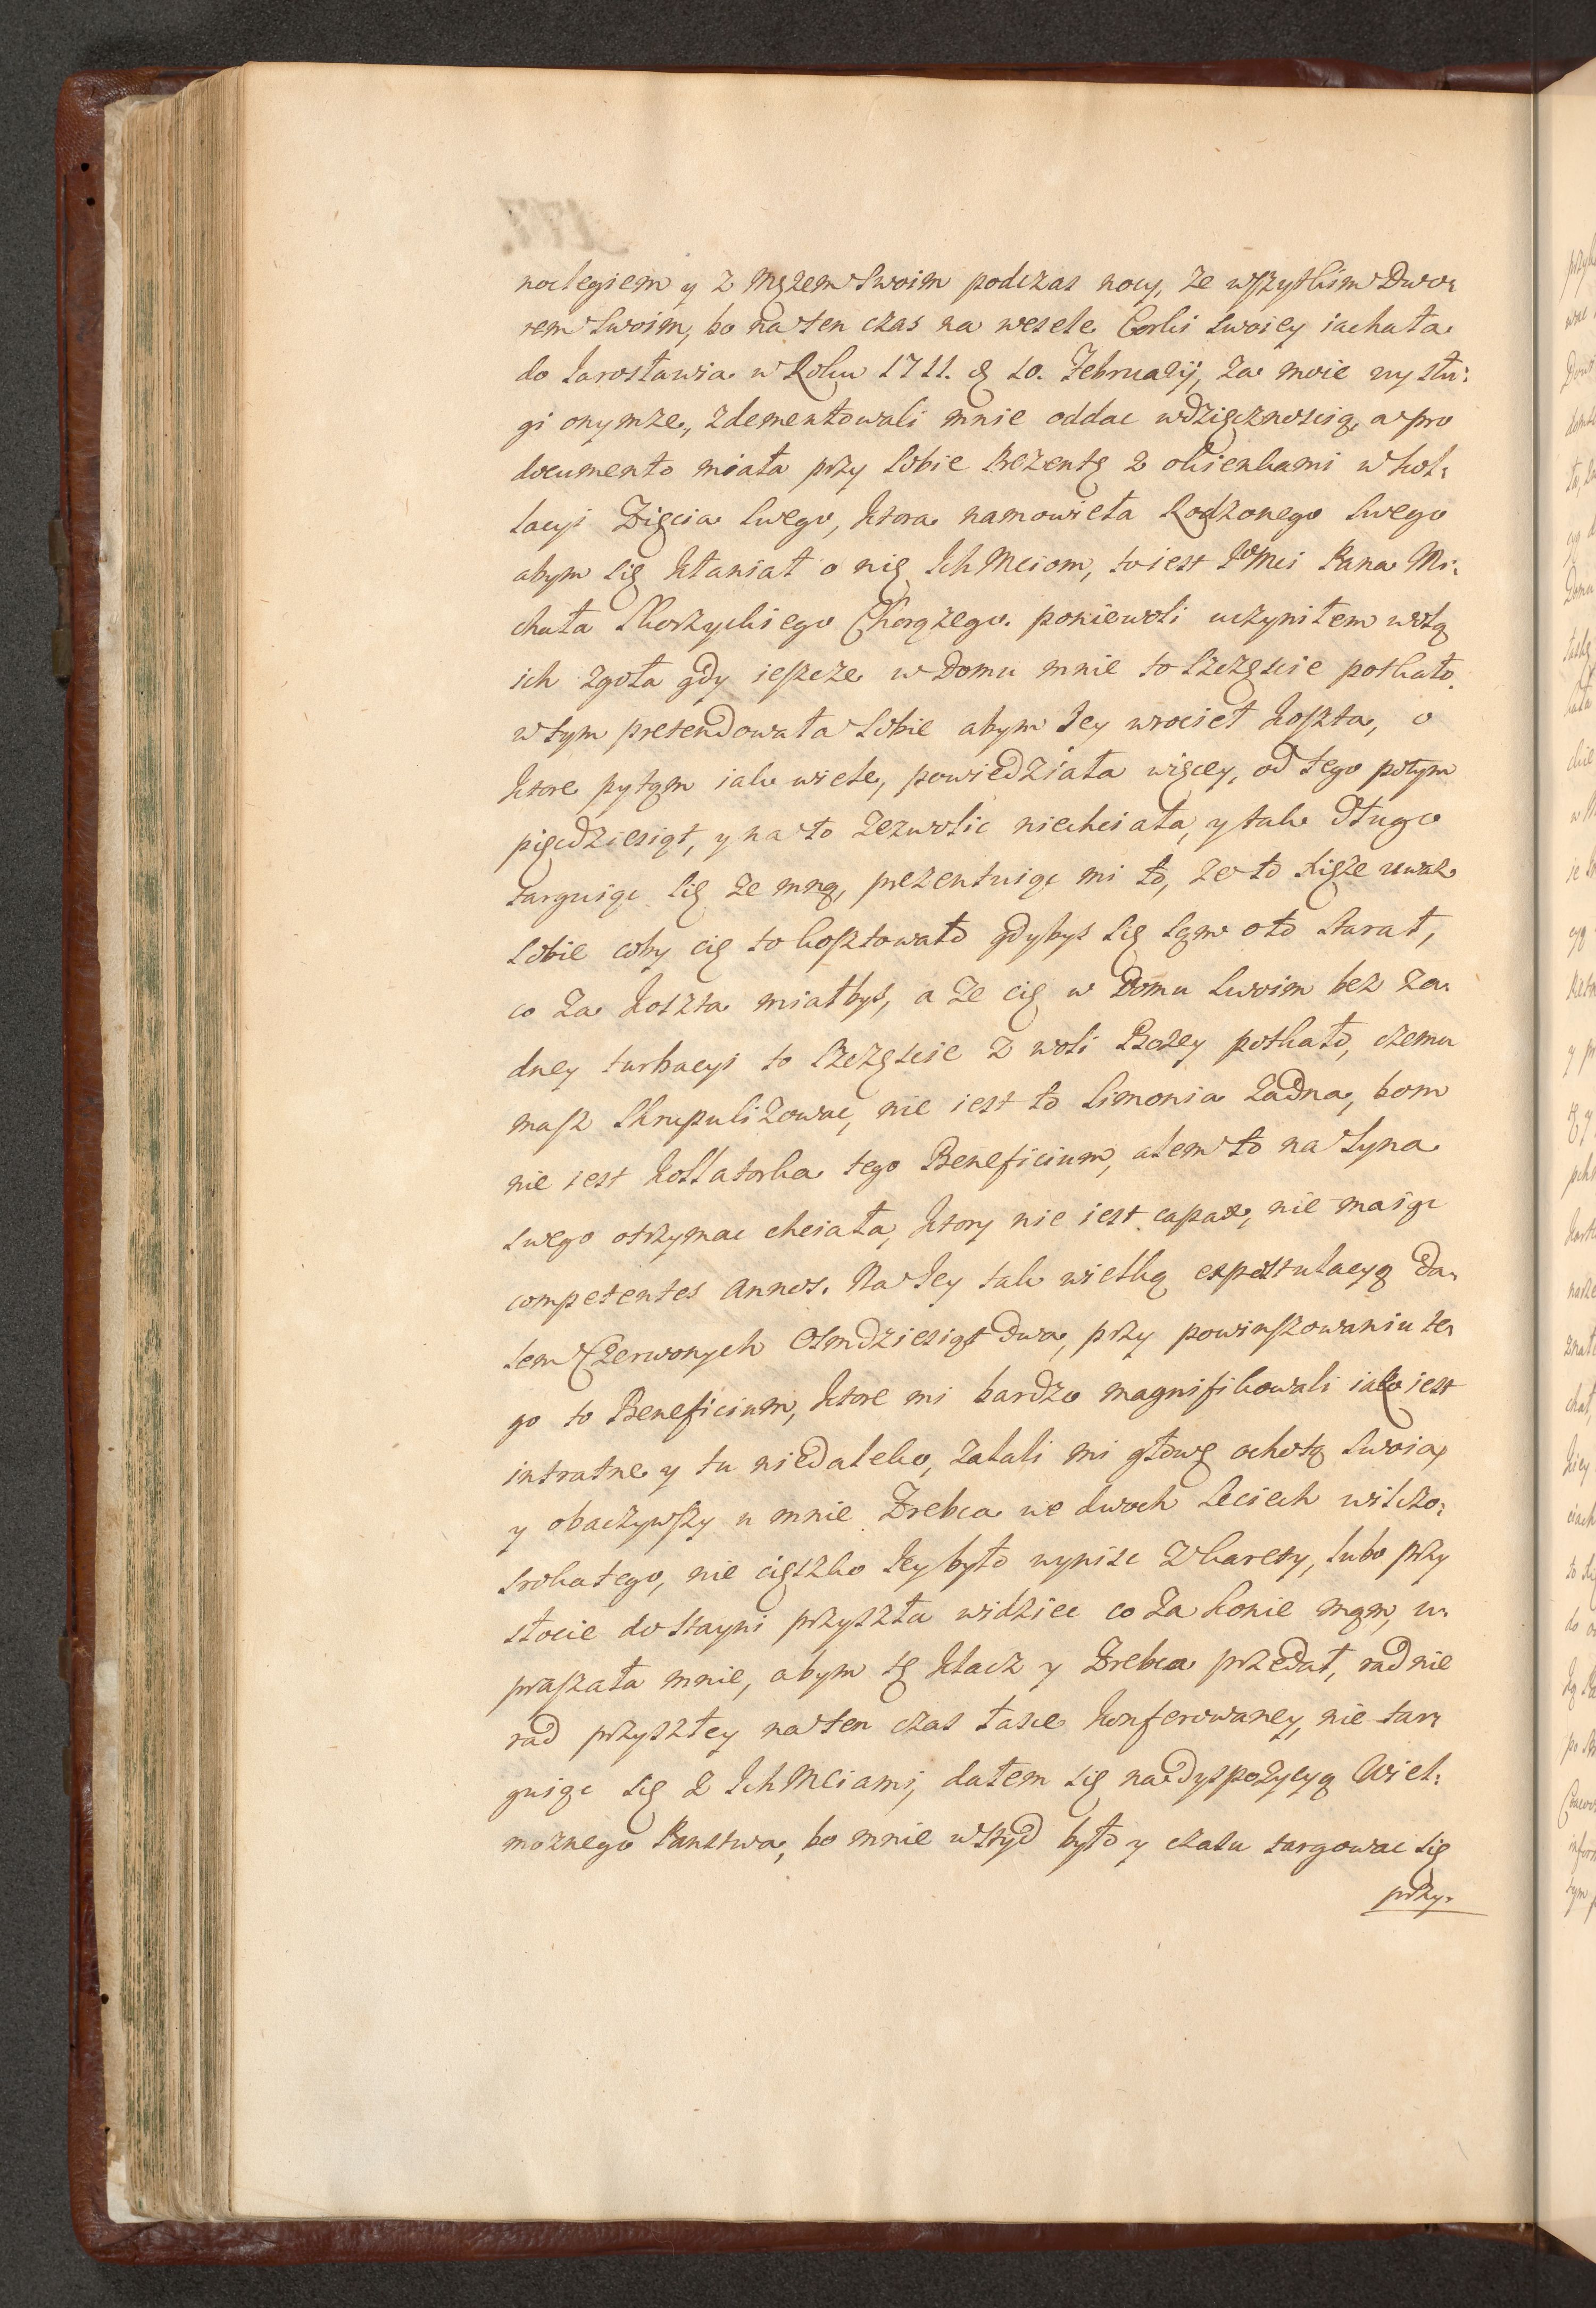 noclegiem y z Mężem Swoim podczas nocy, ze wszytkim Dwo:
rem Swoim, bo na ten czas na wesele Corki Swoiey iachała
do Jarosławia w Roku 1711. d 10. Februarij, za moie wysłu:
gi onymże, zdementowali mnie oddac wdzięcznością, a pro
documento miała przy Sobie Prezentę z okienkami w kol:
lacyi Zięcia Swego, ktora namowiela Rodzonego Swego
abym się kłaniał o nię Ich Mciom, to iest Jmci Pana Mi:
chała Skorzyckiego Chorążego. poniewoli uczyniłem wolą
ich zgoła gdy ieszcze w Domu mnie to Szczęscie potkało.
w tym pretendowała Sobie abym Jey wrocieł koszta, o
ktore pytąm iak wiele, powiedziała więcey, od tego potym
pięcdziesiąt, y na to zezwolic niechciała, y tak długo
targuiąc Się ze mną, prezentuiąc mi to, ze to Xięże uwaz
Sobie coby cię to kosztowało gdybys Się sąm oto Starał,
co za koszta miałbys, a ze cię w Domu Swoim bez za:
dney turbacyi to Szczęscie z woli Bozey potkało, czemu
masz Skrupulizowac, nie iest to Simonia zadna, bom
nie iest kollatorka tego Beneficium, alem to na Syna
Swego otrzymac chciała, ktory nie iest capax, nie maiąc
competentes Annos. Na Jey tak wielką expostulacyą Da:
łem Czerwonych Osmdziesiąt dwa, przy powinszowaniu te:
go to Beneficium, ktore mi bardzo magnifikowali iako iest
intratne y tu niedaleko, zalali mi głowę ochotą Swoią,
y obaczywszy u mnie Zrebca we dwoch leciech wilczo:
srokatego, nie cięszko Jey było wynisc z karety, lubo przy
słocie do stayni przyszła widziec co za konie mąm, u:
praszała mnie, abym tę klacz y Zrebca przedał, rad nie
rad przyszłey na ten czas łasce konferowaney, nie tar:
guiąc Się z Ich Mciami, dałem się na dyspozycyą Wiel:
moznego Panstwa, bo mnie wstyd było y czasu targowac Się
przy: